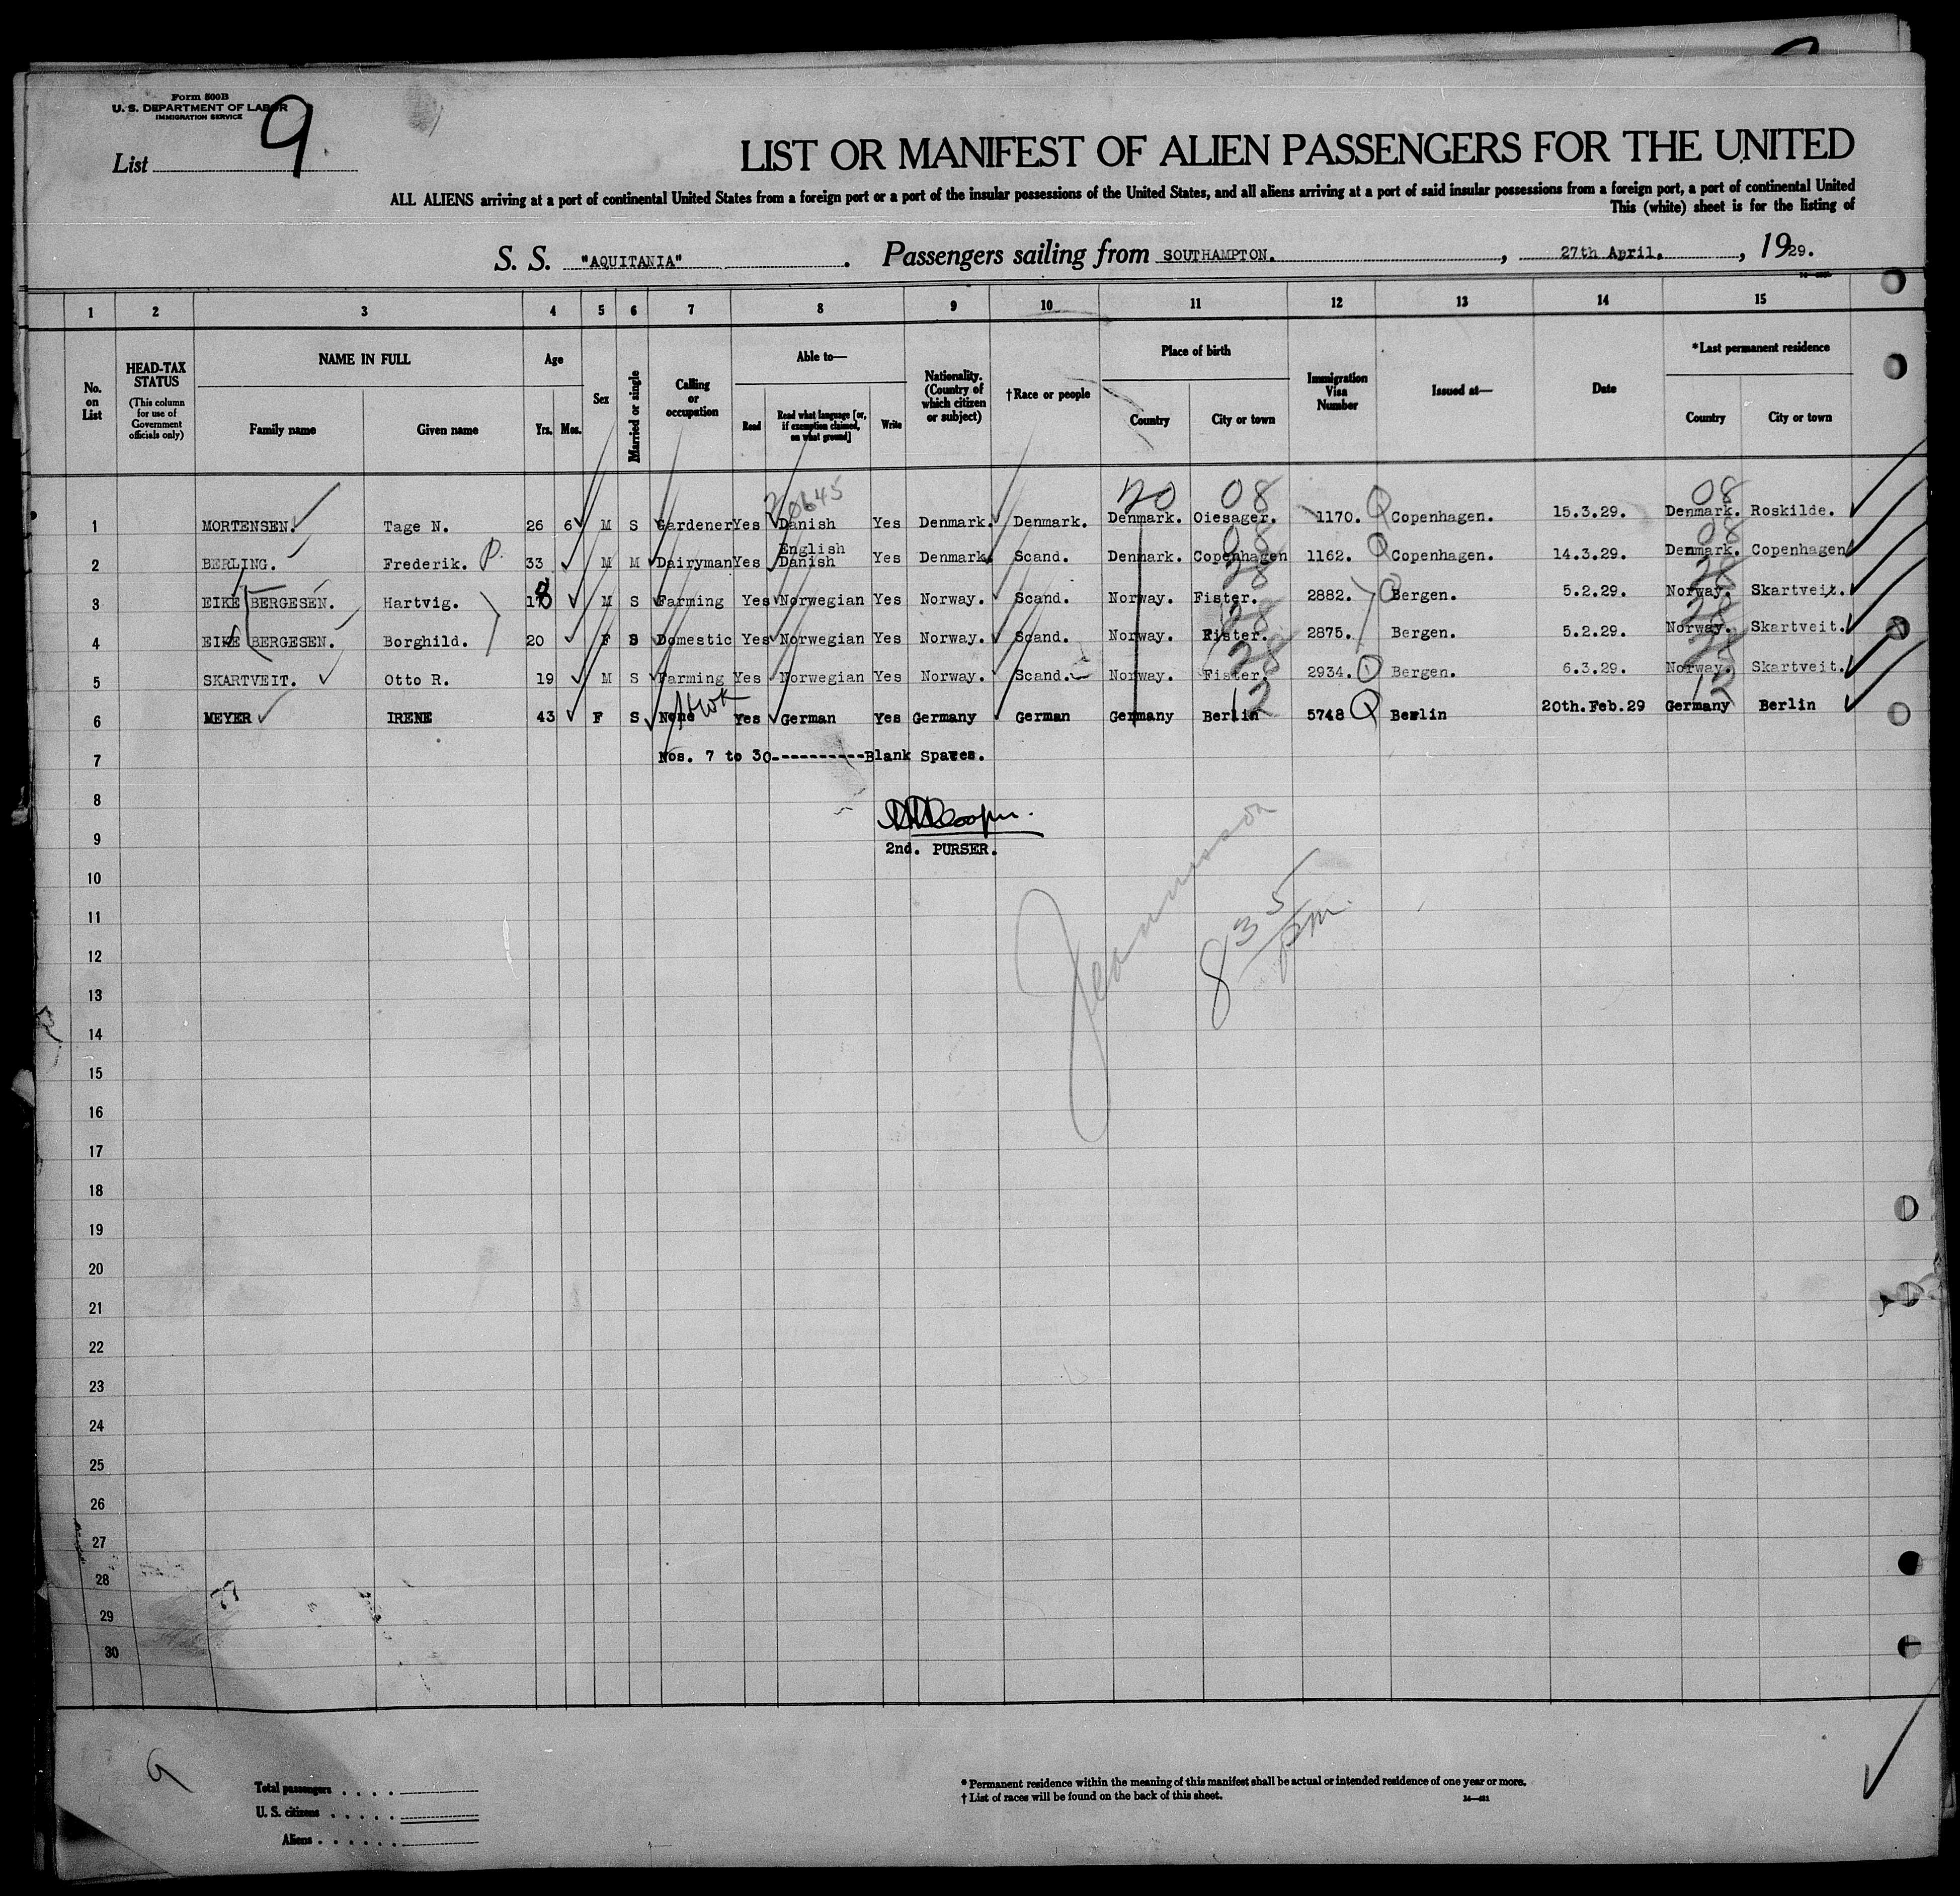 Form 500B
U. S. DEPARTMENT OF LABOR
IMMIGRATION SERVICE
List 9
LIST OR MANIFEST OF ALIEN PASSENGERS FOR THE UNITED
ALL ALIENS arriving at a port of continental United States from a foreign port or a port of the insular possessions of the United States, and all aliens arriving at a port of said insular possessions from a foreign port, a port of continental United
This (white) sheet is for the listing of
S. S. "AQUITANIA" . Passengers sailing from SOUTHAMPTON. , 27th April. , 1929.
1 2 3 4 5 6 7 8 9 10 11 12 13 14 15
No. on List
HEAD-TAX STATUS (This column for use of Government officials only)
NAME IN FULL
Family name Given name
Age
Yrs. Mos.
Sex
Married or single
Calling or occupation
Able to—
Read Read what language [or, if exemption claimed, on what ground] Write
Nationality. (Country of which citizen or subject)
†Race or people
Place of birth
Country City or town
Immigration Visa Number
Issued at—
Date
*Last permanent residence
Country City or town
20645 20 08 08
1 MORTENSEN. Tage N. 26 6 M S Gardener Yes Danish Yes Denmark. Denmark. Denmark. Oiesager. 1170. Copenhagen. 15.3.29. Denmark. Roskilde.
08 08
2 BERLING. Frederik. P. 33 M M Dairyman Yes English Danish Yes Denmark Scand. Denmark. Copenhagen 1162. Copenhagen. 14.3.29. Denmark. Copenhagen
28 28
3 EIKE BERGESEN. Hartvig. 18 M S Farming Yes Norwegian Yes Norway. Scand. Norway. Fister. 2882. Bergen. 5.2.29. Norway. Skartveit.
28 28
4 EIKE BERGESEN. Borghild. 20 F S Domestic Yes Norwegian Yes Norway. Scand. Norway. Fister. 2875. Bergen. 5.2.29. Norway. Skartveit.
28 28
5 SKARTVEIT. Otto R. 19 M S Farming Yes Norwegian Yes Norway. Scand. Norway. Fister. 2934. Bergen. 6.3.29. Norway. Skartveit.
12 12
6 MEYER IRENE 43 F S None Yes German Yes Germany German Germany Berlin 5748 Berlin 20th.Feb.29 Germany Berlin
7 Nos. 7 to 30----------Blank Spaces.
8
9 2nd. PURSER.
10
11
8 35 pm.
12
13
14
15
16
17
18
19
20
21
22
23
24
25
26
27
28
29
30
9
Total passengers
U. S. citizens
Aliens
* Permanent residence within the meaning of this manifest shall be actual or intended residence of one year or more.
† List of races will be found on the back of this sheet.